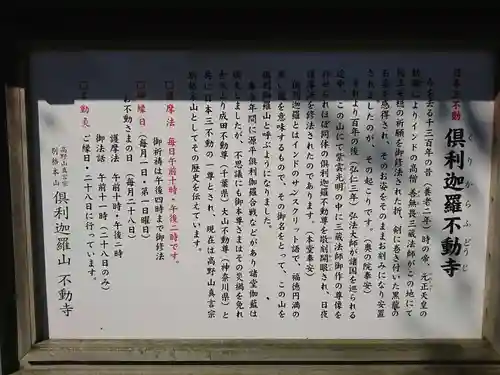 日本三不動
倶利伽羅不動寺
くりからふどうじ
今を去る千三百年の昔（養老二年）時の帝、元正天皇の
勅願によりインドの高僧、善無畏三蔵法師がこの地にて
国土安穏の祈願を御修法された折、剣に巻き付いた黒龍の
お姿を感得され、そのお姿をそのままお刻みになり安置
されましたのが、その起こりです。（奥の院奉安）
それより百年の後（弘仁三年）弘法大師が諸国を巡られる
途中、この山にて紫雲光明の中に三蔵法師御作の尊像を
拝されほぼ同体の倶利伽羅不動尊を敬刻開眼され、日夜
護摩法を修法されたのであります。（本堂奉安）
倶利伽羅とはインドのサンスクリット語で、福徳円満の
黒い龍を意味するもので、その御名をとって、この山を
倶利伽羅山と呼ぶようになりました。
寿永年間に源平倶利伽羅合戦などがあり諸堂伽藍は
焼失しましたが、不思議にも御本尊さまはその災禍を免れ
それより成田不動尊（千葉県）、大山不動尊（神奈川県）と
共に日本三不動の一尊とされ、現在は高野山真言宗
別格本山としてその歴史を伝えています。
□護摩法 毎日午前十時・午後二時です。
御祈祷は午後四時まで御修法
□御縁日（毎月一日・第一日曜日）
□お不動さまの日（毎月二十八日）
護摩法 午前十時・午後二時
御法話 午前十一時（二十八日のみ）
□不動灸
ご縁日・二十八日に行っています。
高野山真言宗
別格本山
倶利伽羅山 不動寺